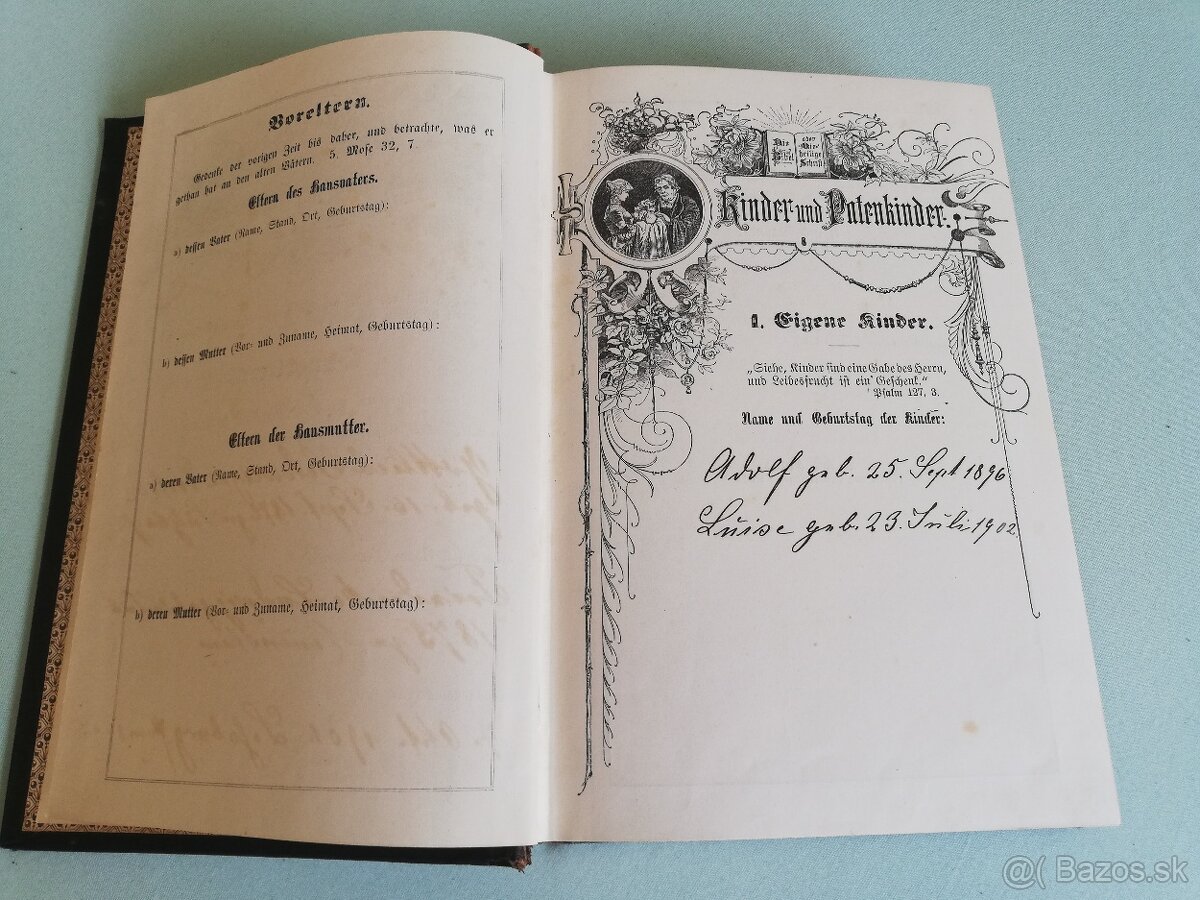 Voreltern.
Gedenke der vorigen Zeit bis daher, und betrachte, was er
gethan hat an den alten Vätern. 5. Mose 32, 7.
Eltern des Hausvaters.
a) dessen Vater (Name, Stand, Ort, Geburtstag):
b) dessen Mutter (Vor- und Zuname, Heimat, Geburtstag):
Eltern der Hausmutter.
a) deren Vater (Name, Stand, Ort, Geburtstag):
b) deren Mutter (Vor- und Zuname, Heimat, Geburtstag):
Die Bibel oder die heilige Schrift
Kinder und Patenkinder.
1. Eigene Kinder.
„Siehe, Kinder sind eine Gabe des Herrn,
und Leibesfrucht ist ein Geschenk."
Psalm 127, 3.
Name und Geburtstag der Kinder:
Adolf geb. 25. Sept 1896
Luise geb. 23. Juli 1902
@( Bazos.sk